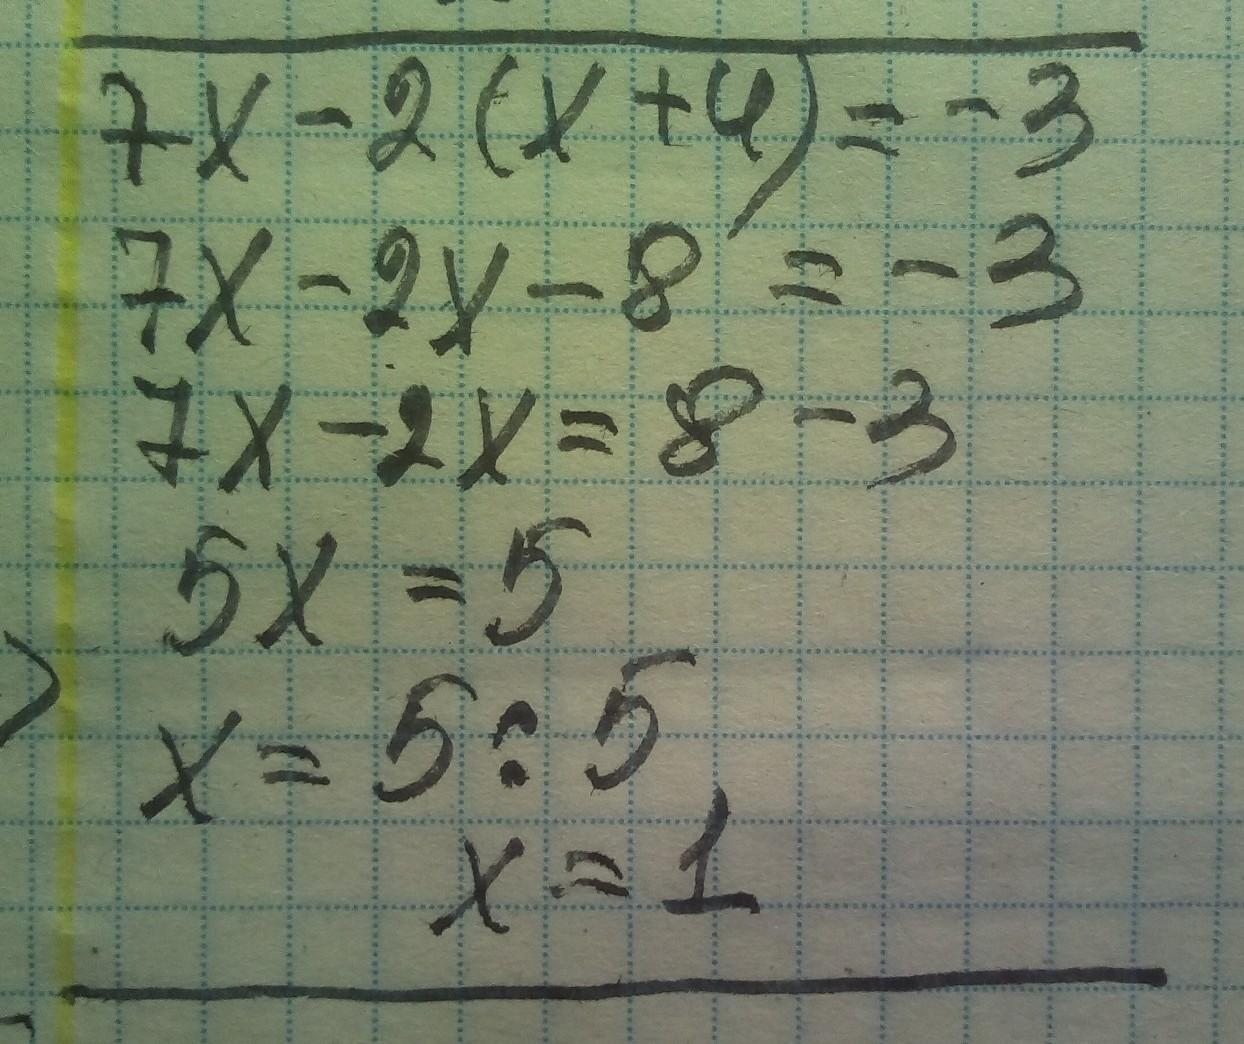 7x - 2(x + 4) = -3
7x - 2x - 8 = -3
7x - 2x = 8 - 3
5x = 5
x = 5 : 5
x = 1